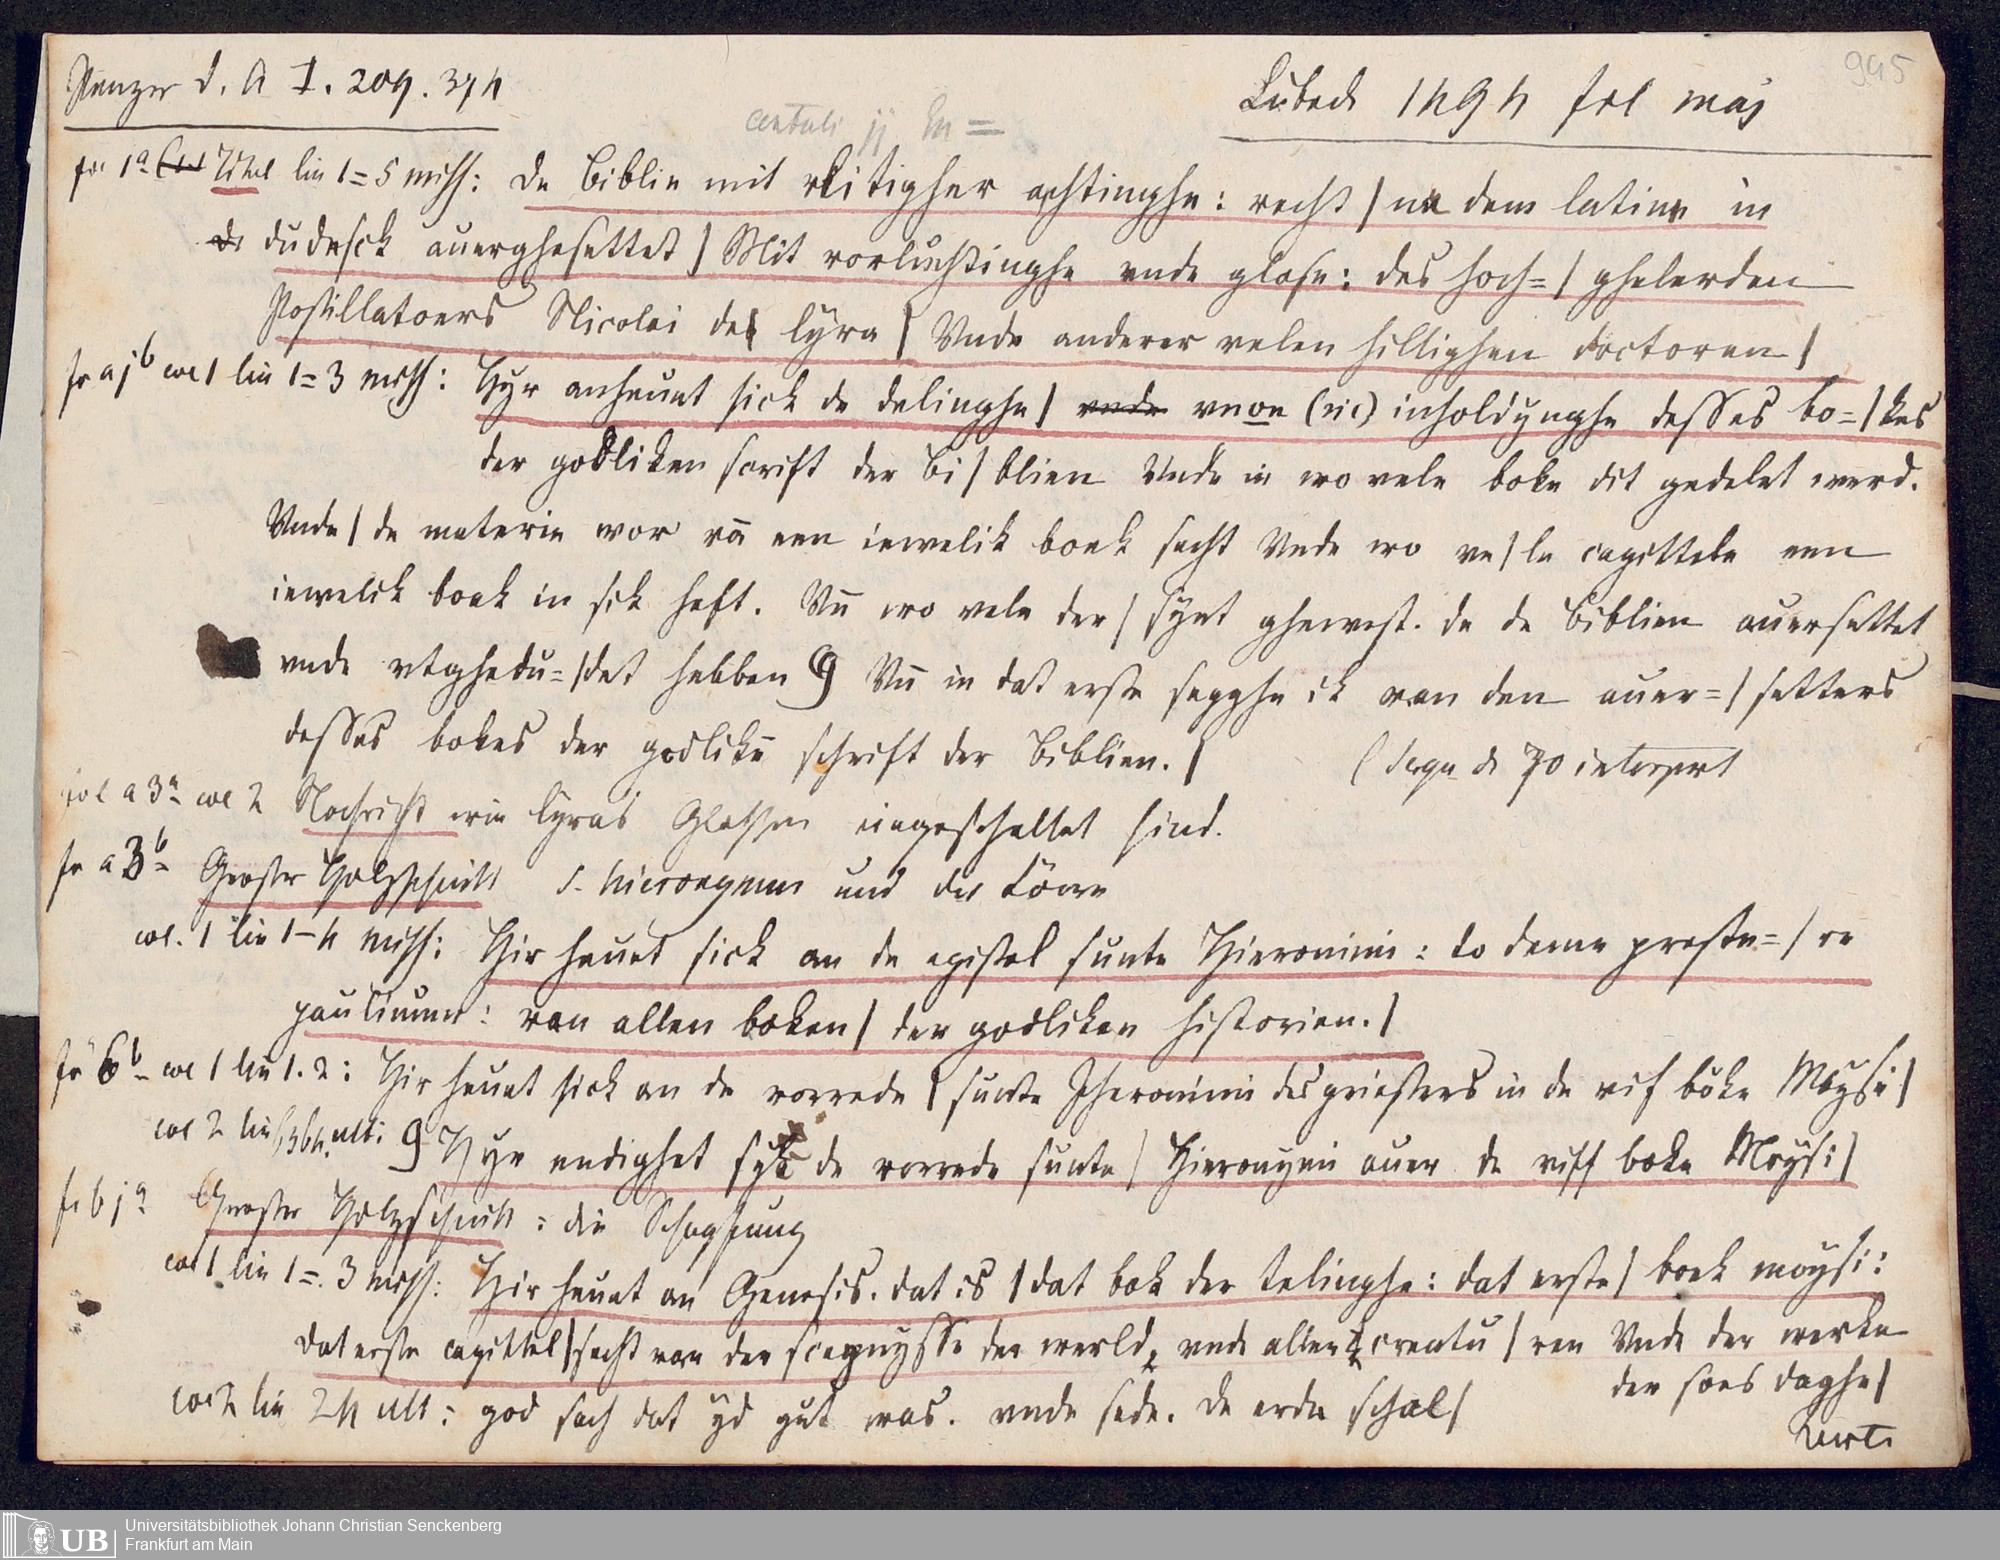 Panzer d. A I. 209. 374
Lübeck 1494 fol maj
995
fol 1a Titel lin 1=5 miss: De Biblie mit vlitigher achtinghe: recht / na dem latine in
dudesck auerghesettet / Mit vorluchtinghe vnde glose: des hoch= / ghelerden
Postillatoers Nicolai de lyra / Vnde anderer velen hillighen doctoren /
fo a jb col 1 lin 1=3 miss: Hyr anheuet sick de delinghe / vnde vnon (sic) inholdynghe desses bo= / kes
der godliken scrift der bi / blien Vnde in wo vele boke dit gedelet werd.
Vnde / de materie wor vā een iewelik boek secht Vnde wo ve / le capittele een
iewelick boek in sik heft. Vn̄ wo vele der / synt ghewest. de de biblien auersettet
vnde vtghedu= / det hebben Vn̄ in dat erste segghe ik van den auer= / setters
desses bokes der godlikē schrift der Biblien. /
( Sequ de 70 interpret
fol a 3a col 2 Nachricht wie Lyras Glossen eingeschaltet sind.
fo a 3b Großer Holzschnitt S. Hieronymus und der Löwe
col. 1 lin 1-4 miss: Hir heuet sick an de epistel sunte Hieronimi: to deme preste= / re
paulinum: van allen boken / der godliken historien. /
fo 6b col 1 lin 1. 2: Hir heuet sick an de vorrede / sunte Jheronimi des priesters in de vif böke Moysi /
col 2 lin ult: Hyr endighet syk de vorrede sunte / Hieronymi auer de viff boke Moysi /
fo b ja Großer Holzschnitt: die Schöpfung
col 1 lin 1=3 miss: Hir heuet an Genesis. dat is / dat bok der telinghe: dat erste / boek moysi:
dat erste capittel / secht van der scepnysse der werld vnde aller creatu / ren Vnde der werke
der soes daghe /
col 2 lin 24 ult: god sach dat yd gut was. vnde sede. De erde schal /
vert.
Universitätsbibliothek Johann Christian Senckenberg
UB
Frankfurt am Main